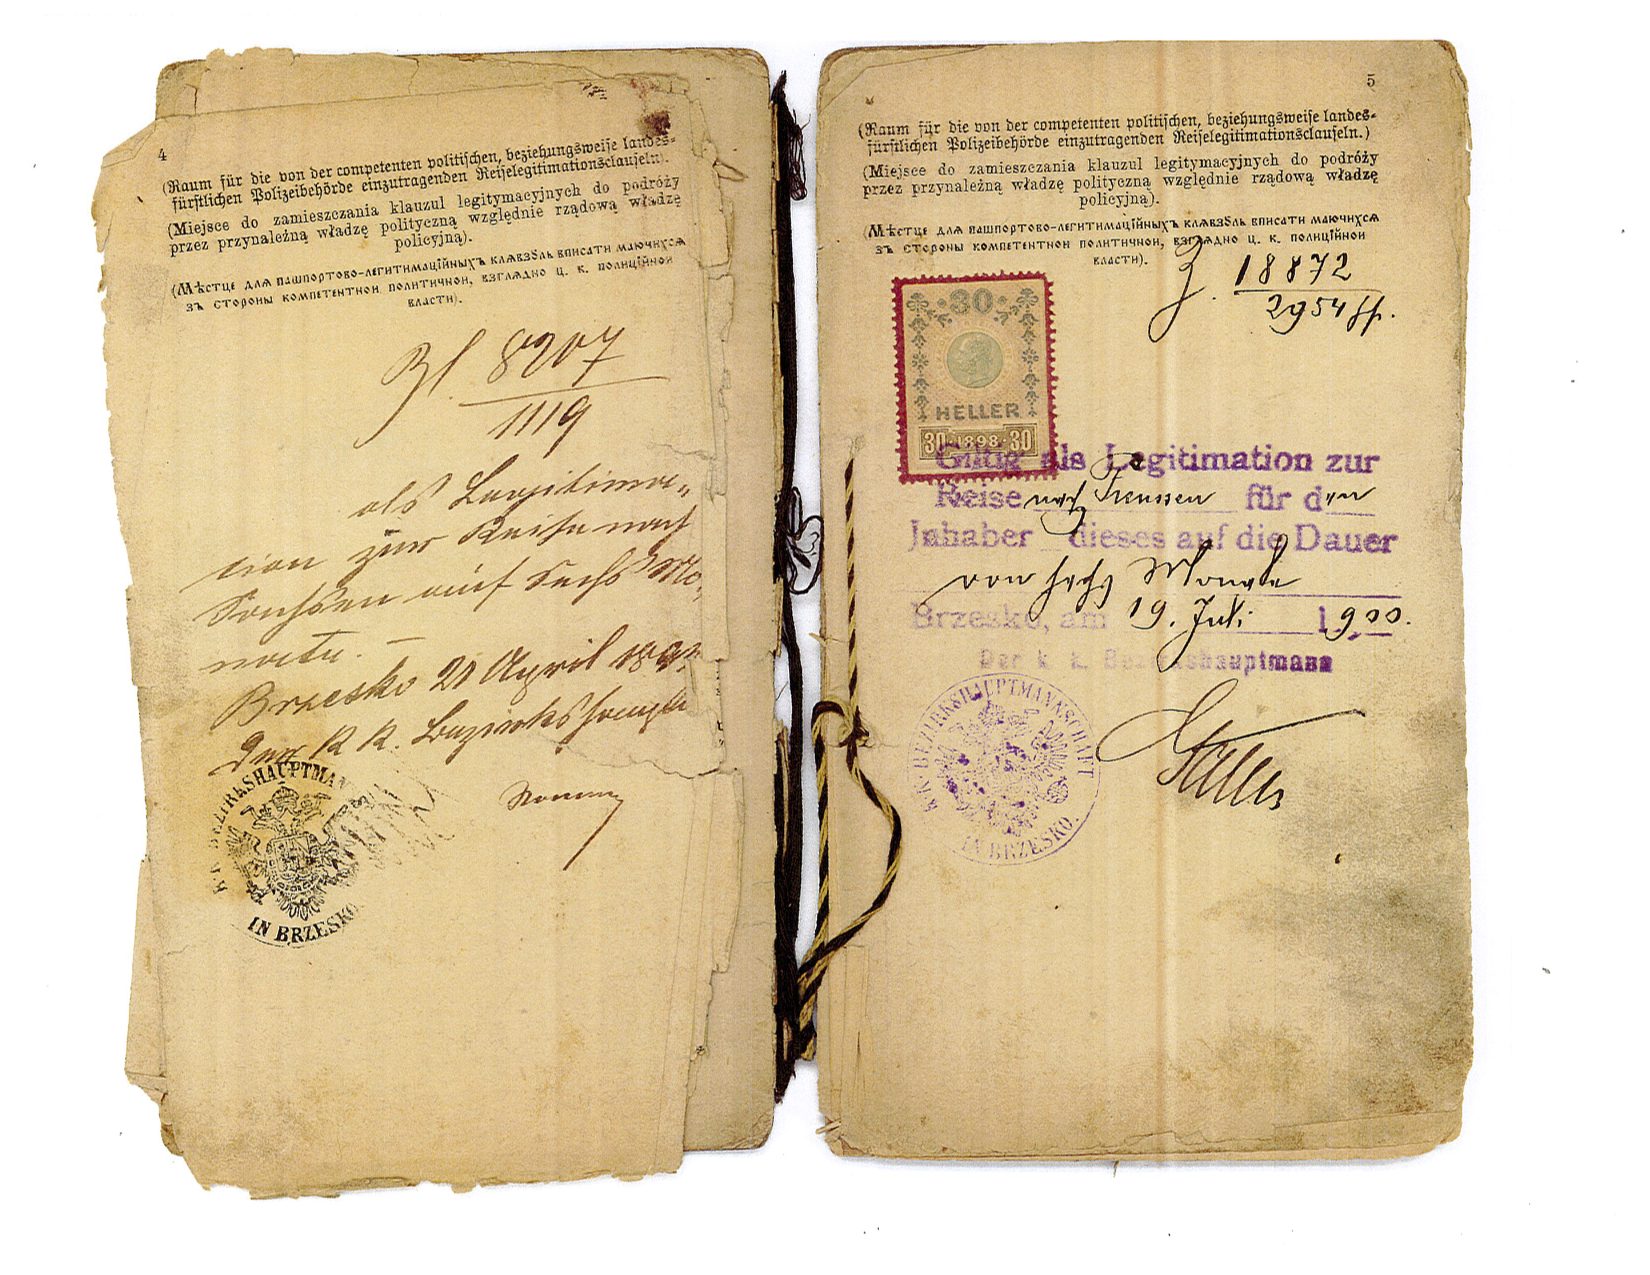 4
(Raum für die von der competenten politischen, beziehungsweise landes-
fürstlichen Polizeibehörde einzutragenden Reiselegitimationsclauseln).
(Miejsce do zamieszczania klauzul legitymacyjnych do podróży
przez przynależną władzę polityczną względnie rządową władzę
policyjną).
(Мѣстце для пашпортово-легитимаційныхъ клявзѹль вписати маючихся
зъ стороны компетентнои политичнои, взглядно ц. к. полиційнои
власти).
Zl. 8207
1119
als Legitima-
tion zur Reise nach
Sachsen auf sechs Mo-
nate. —
Brzesko 21 April
Der K. K. Bezirkshaupt
K. K. BEZIRKSHAUPTMAN
IN BRZESKO
5
(Raum für die von der competenten politischen, beziehungsweise landes-
fürstlichen Polizeibehörde einzutragenden Reiselegitimationsclauseln.)
(Miejsce do zamieszczania klauzul legitymacyjnych do podróży
przez przynależną władzę polityczną względnie rządową władzę
policyjną).
(Мѣстце для пашпортово-легитимаційныхъ клявзѹль вписати маючихся
зъ стороны компетентнои политичнои, взглядно ц. к. полиційнои
власти).
Z. 18872
2954
30
HELLER
30 · 1898 · 30
Giltig als Legitimation zur
Reise nach Preussen für den
Inhaber dieses auf die Dauer
von sechs Monate
Brzesko, am 19. Juli 1900.
Der k. k. Bezirkshauptmann
K. K. BEZIRKSHAUPTMANNSCHAFT
IN BRZESKO.